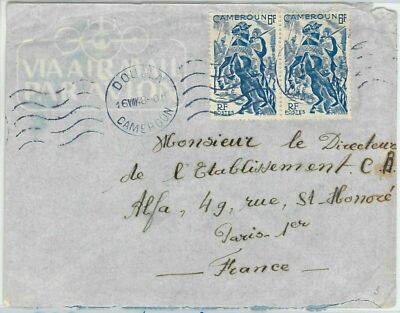 VIA AIR MAIL
PAR AVION
DOUALA
CAMEROUN
CAMEROUN 6F
RF
POSTES
CAMEROUN 6F
RF
POSTES
Monsieur le Directeur
de l'Etablissement C.
Alfa, 49, rue, St Honoré
Paris-1er
— France —